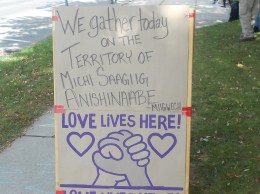 WE gather today
ON THE
TERRITORY OF
MICHI SAAGIIG
ANISHINAABE
-MIIGWECH
LOVE LIVES HERE!